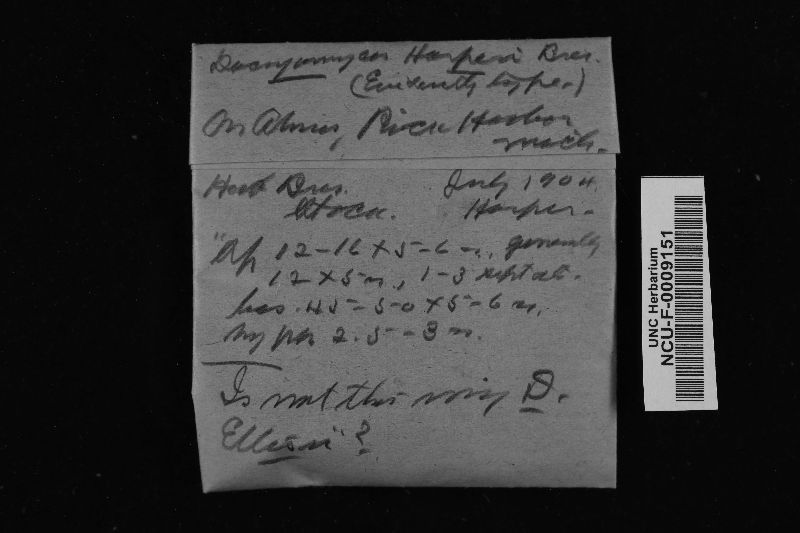 Dacryomyces Harperi Bres.
(Evidently type.)
On Alnus, River Harbor
Mich.
Herb Bres.
July 1904
Stock.
Harper.
"Sp. 12-16 x 5-6 m., generally
12 x 5 m., 1-3 septate.
bas. 45-50 x 5-6 m.
hyphs 2.5-3 m.
Is not this my D.
Ellisii"?
UNC Herbarium
NCU-F-0009151